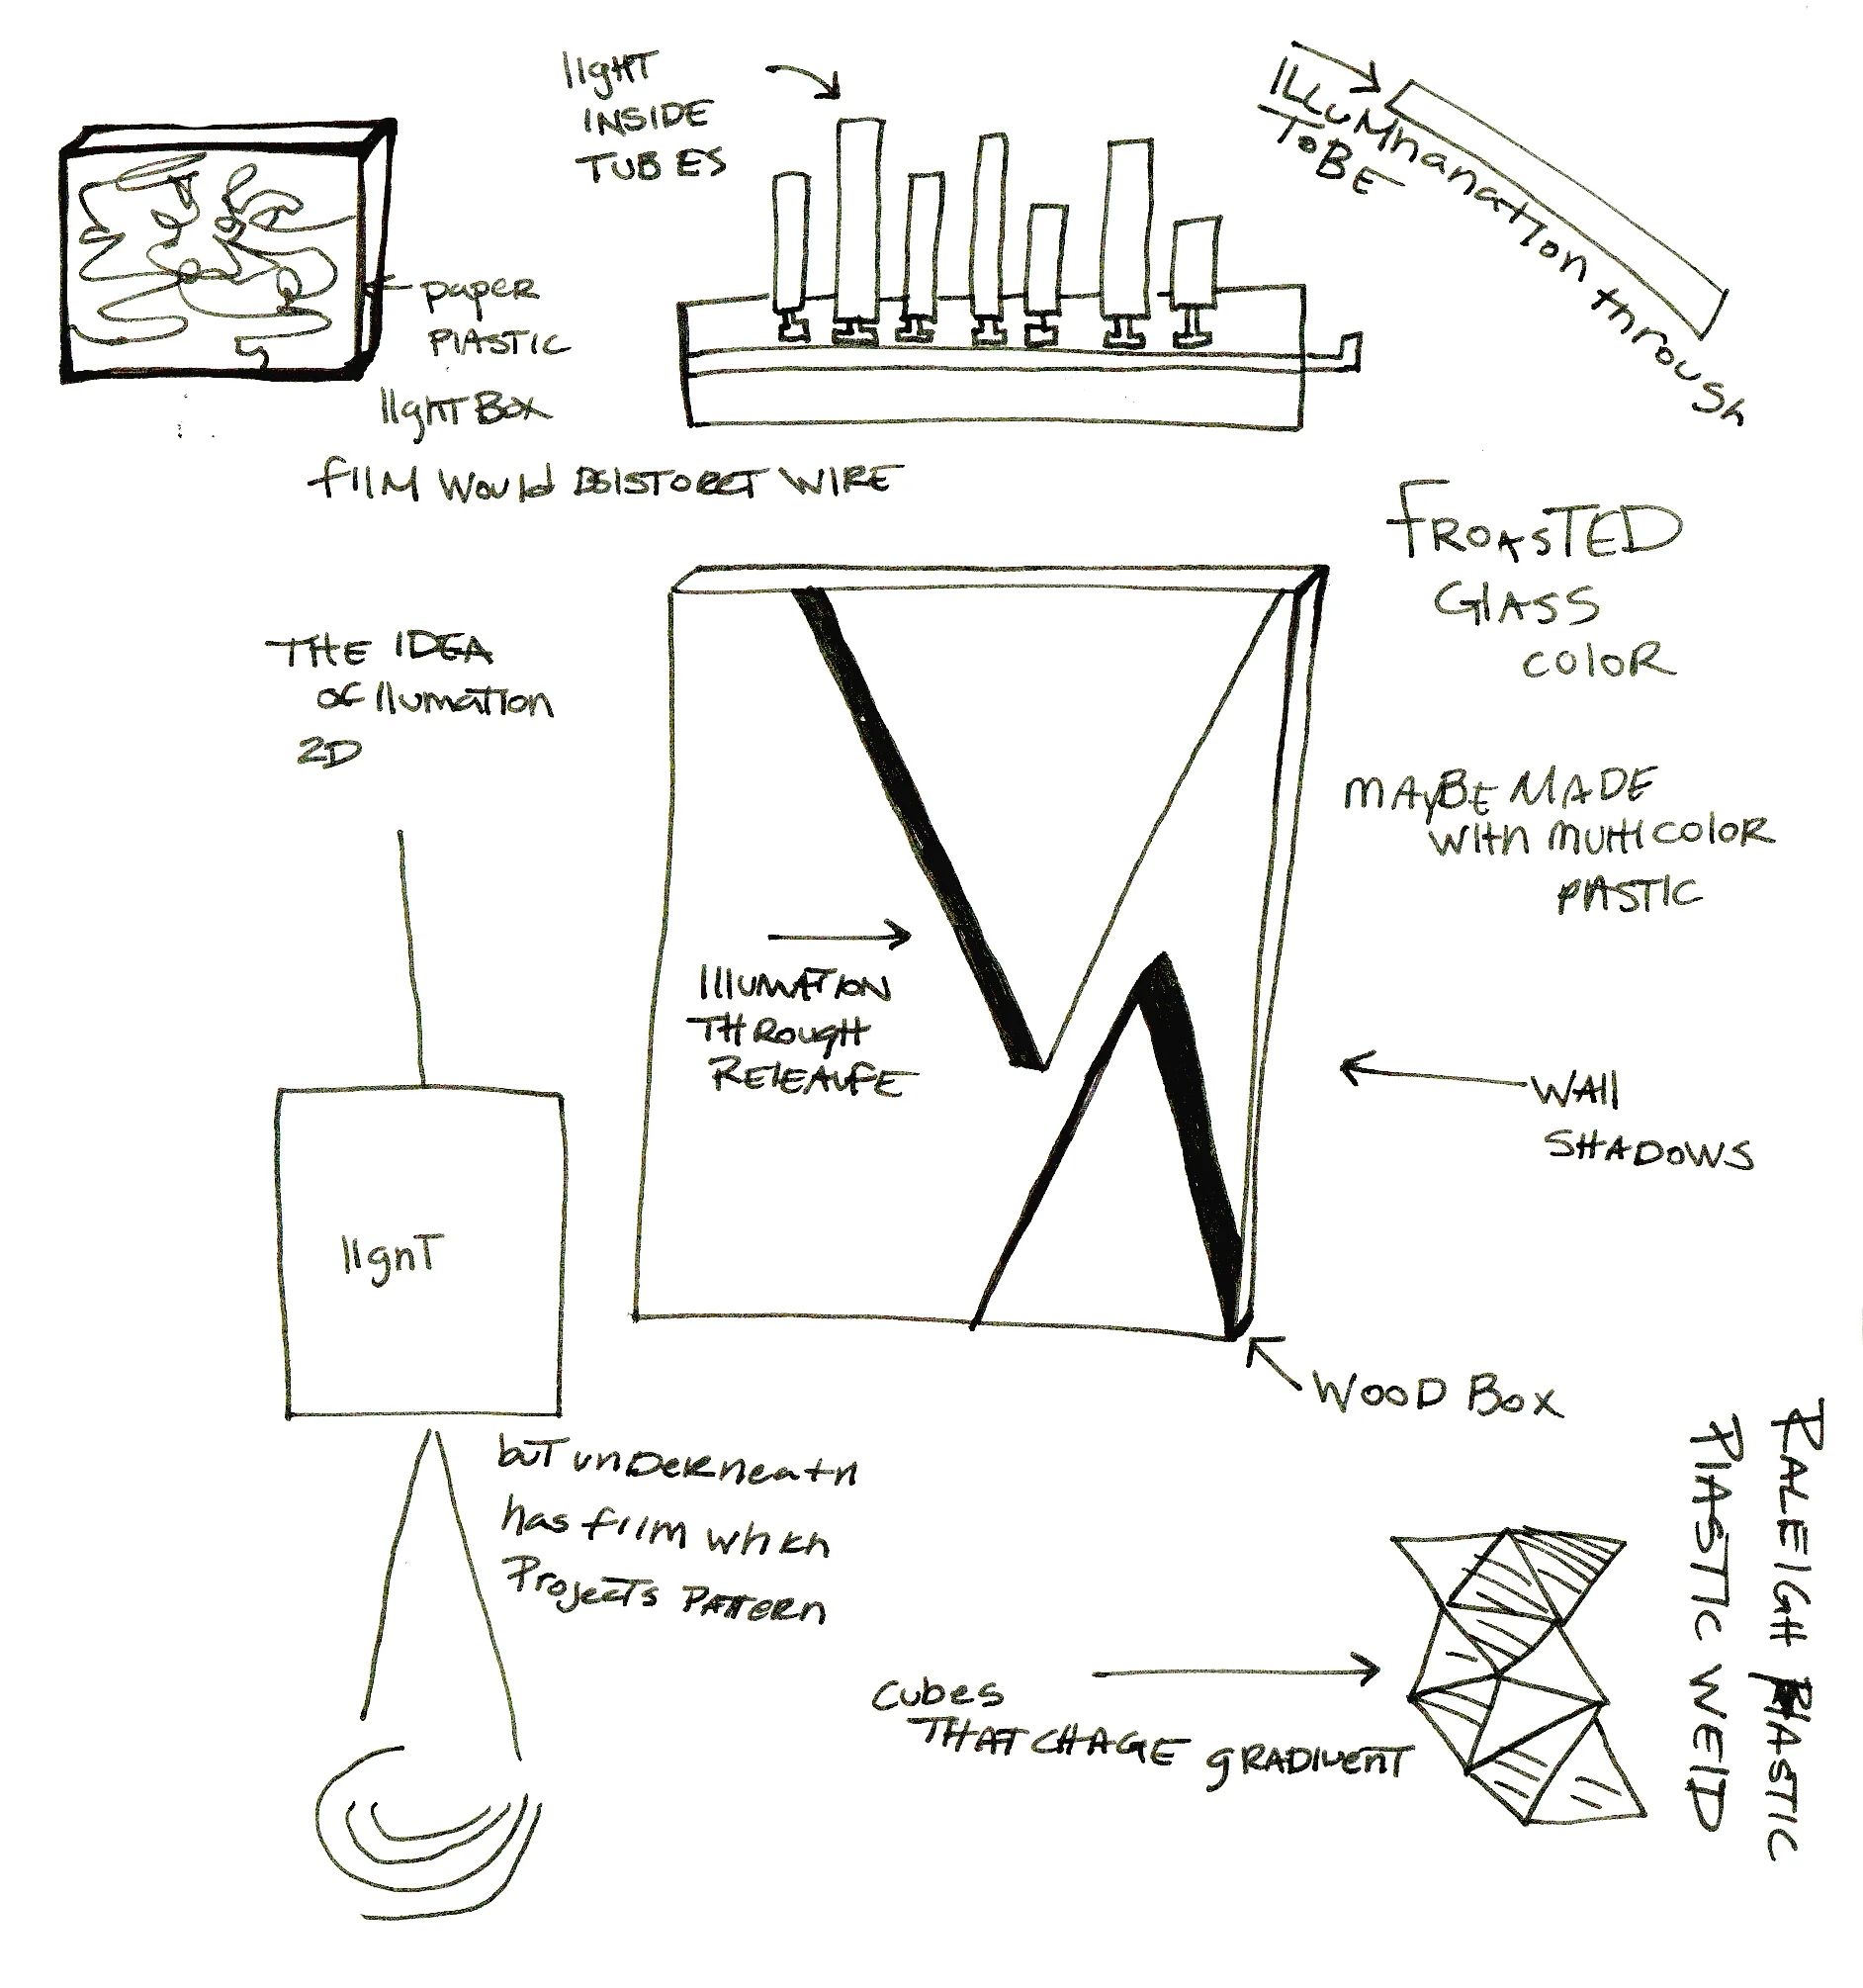 light
INSIDE
TUBES
ILLuMhanation through
TOBE
paper
PlASTIC
lighTBox
film would DISTORCT WIRE
fROASTED
GlASS
COloR
THE IDEA
of Ilumation
2D
MAyBE MADE
with multicolor
PlASTIC
IllUMATION
THROUgH
RELEAUFE
WAll
SHADOWS
lighT
WOOD BOX
buT unDERneath
has film which
ProjecTs PATTERn
cubes
THAT CHAGE gRADIuenT
RALEIGH PlASTIC
PlASTIC WElD